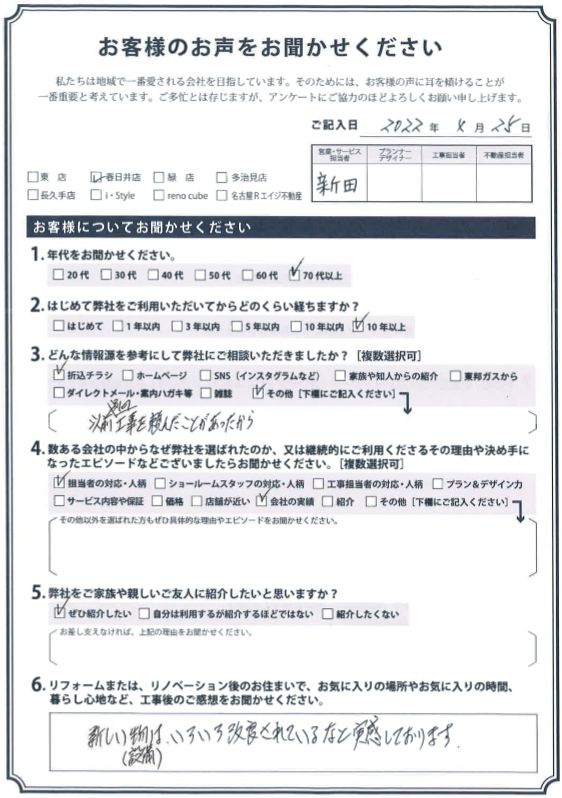 お客様のお声をお聞かせください
私たちは地域で一番愛される会社を目指しています。そのためには、お客様の声に耳を傾けることが
一番重要と考えています。ご多忙とは存じますが、アンケートにご協力のほどよろしくお願い申し上げます。
ご記入日 2022 年 4 月 25 日
営業・サービス担当者 プランナーデザイナー 工事担当者 不動産担当者
新田
□東 店 ☑春日井店 □緑 店 □多治見店
□長久手店 □i・Style □reno cube □名古屋Rエイジ不動産
お客様についてお聞かせください
1. 年代をお聞かせください。
□20代 □30代 □40代 □50代 □60代 ☑70代以上
2. はじめて弊社をご利用いただいてからどのくらい経ちますか？
□はじめて □1年以内 □3年以内 □5年以内 □10年以内 ☑10年以上
3. どんな情報源を参考にして弊社にご相談いただきましたか？［複数選択可］
☑折込チラシ □ホームページ □SNS（インスタグラムなど） □家族や知人からの紹介 □東邦ガスから
□ダイレクトメール・案内ハガキ等 □雑誌 ☑その他［下欄にご記入ください］
以前工事を頼んだことがあったから
4. 数ある会社の中からなぜ弊社を選ばれたのか、又は継続的にご利用くださるその理由や決め手に
なったエピソードなどございましたらお聞かせください。［複数選択可］
☑担当者の対応・人柄 □ショールームスタッフの対応・人柄 □工事担当者の対応・人柄 □プラン＆デザイン力
□サービス内容や保証 □価格 □店舗が近い ☑会社の実績 □紹介 □その他［下欄にご記入ください］
その他以外を選ばれた方もぜひ具体的な理由やエピソードをお聞かせください。
5. 弊社をご家族や親しいご友人に紹介したいと思いますか？
☑ぜひ紹介したい □自分は利用するが紹介するほどではない □紹介したくない
お差し支えなければ、上記の理由をお聞かせください。
6. リフォームまたは、リノベーション後のお住まいで、お気に入りの場所やお気に入りの時間、
暮らし心地など、工事後のご感想をお聞かせください。
新しい物は、いろいろ改良されているなと実感しております.
(設備)